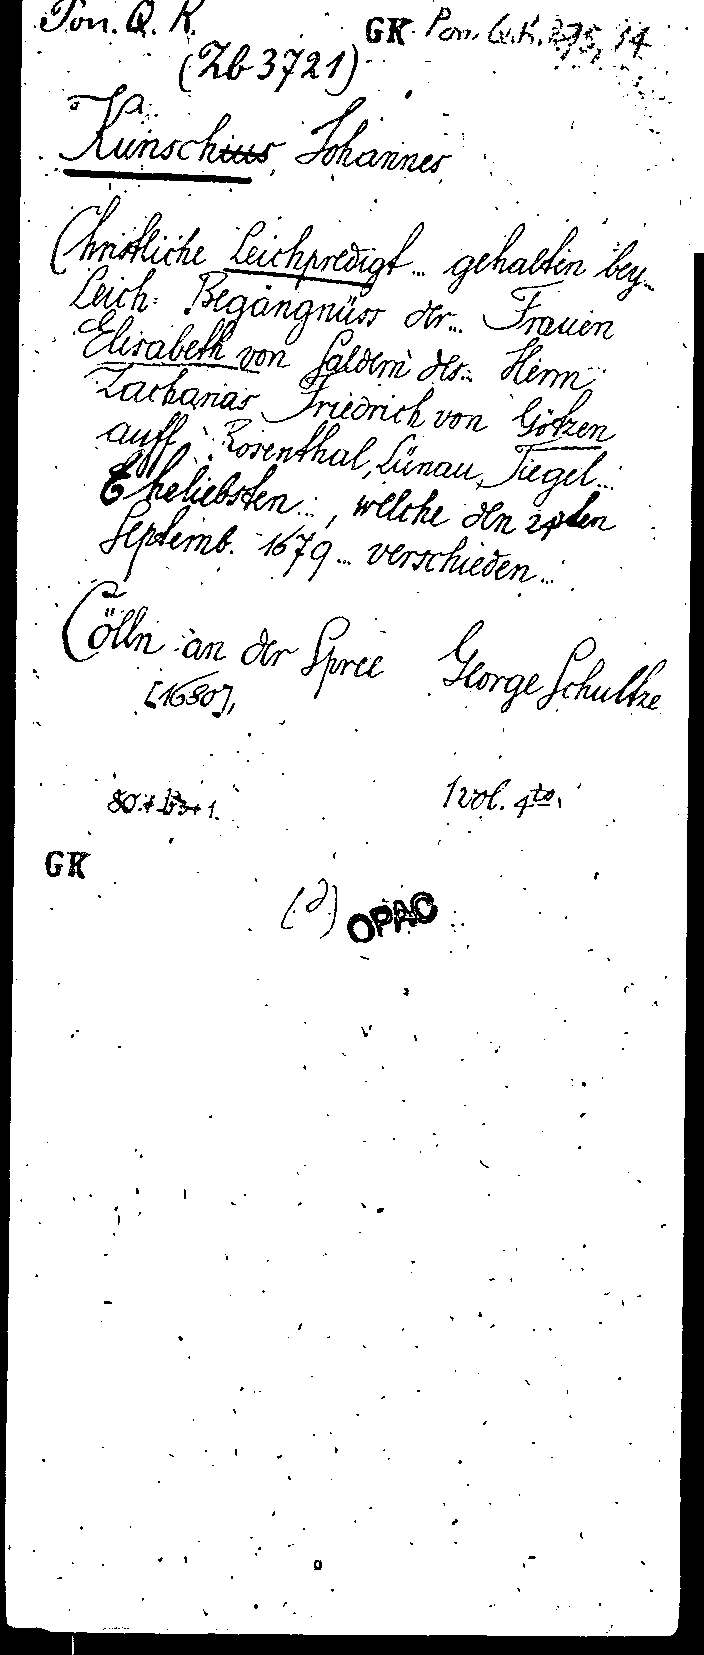 Pon. Q. K.
GK Pon. Q.K. 275, 14
(Zb 3721)
Kunschius, Johannes
Christliche Leichpredigt... gehalten bey...
Leich: Begängnüss der... Frauen
Elisabeth von Saldern des... Herrn
Zacharias Friedrich von Götzen
auff Rosenthal, Lünau, Tiegel...
Eheliebsten..., welche den 24sten
Septemb. 1679... verschieden...
Cölln an der Spree George Schultze
[1680],
1 vol. 4to.
GK
(2) OPAC